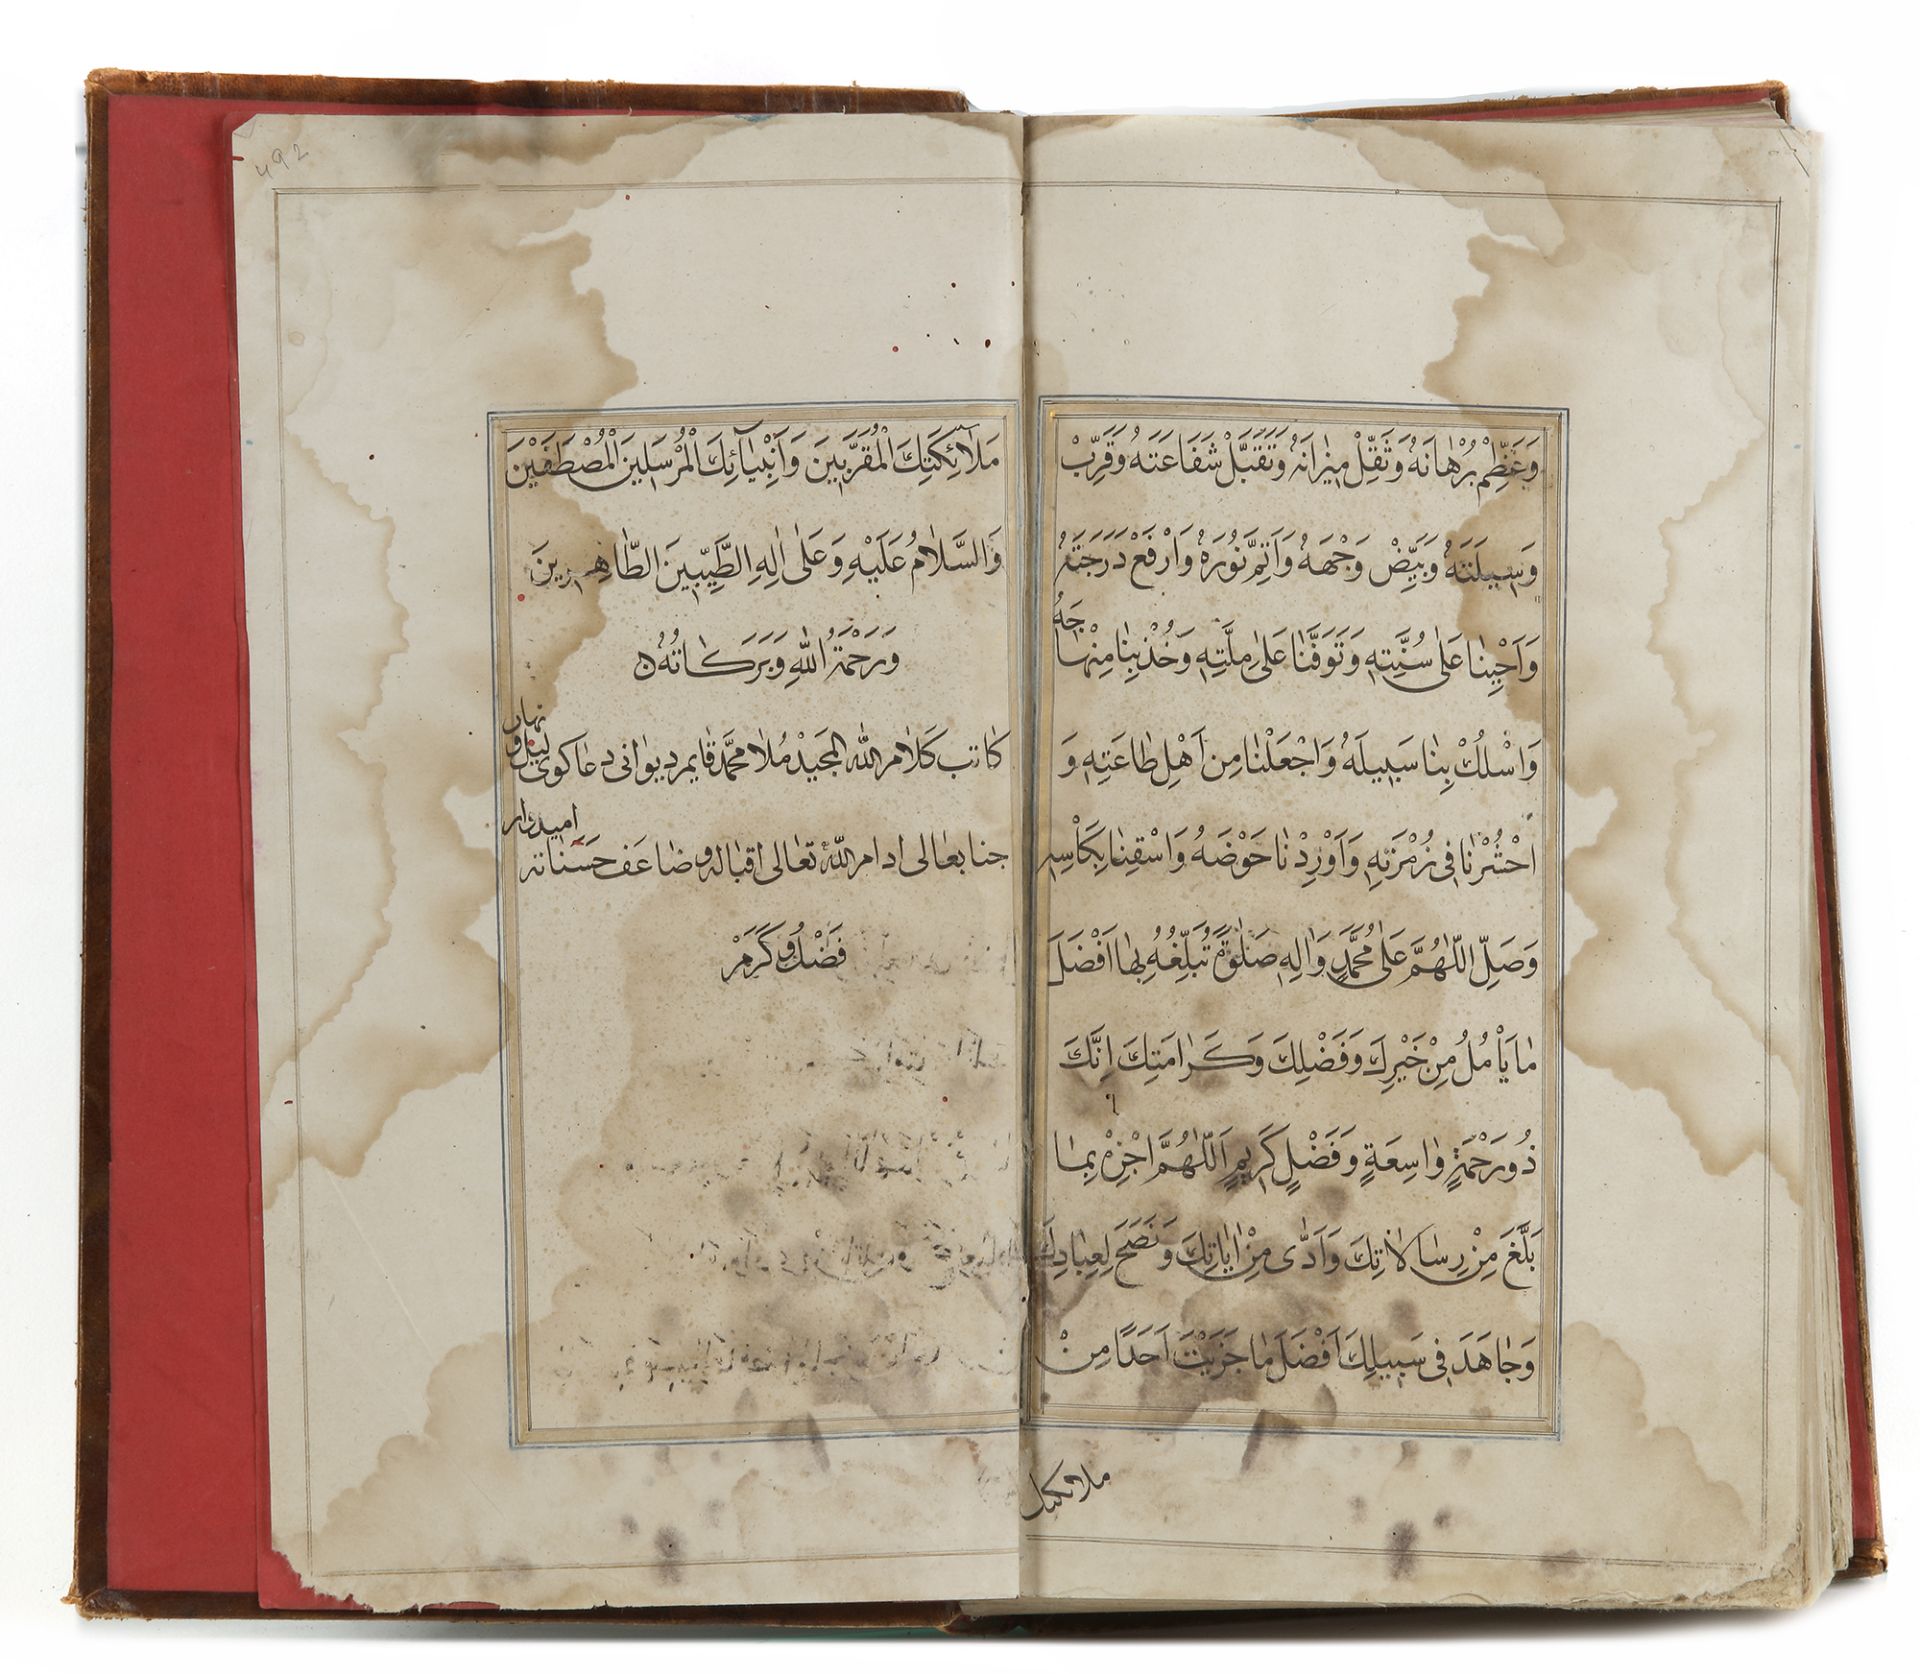 وَعَظِّمْ بُرْهَانَهُ وَثَقِّلْ مِيزَانَهُ وَتَقَبَّلْ شَفَاعَتَهُ وَقَرِّبْ
وَسِيلَتَهُ وَبَيِّضْ وَجْهَهُ وَاَتِمَّ نُورَهُ وَارْفَعْ دَرَجَتَهُ
وَاَحْيِنَا عَلَى سُنَّتِهِ وَتَوَفَّنَا عَلَى مِلَّتِهِ وَخُذْ بِنَا مِنْهَاجَهُ
وَاسْلُكْ بِنَا سَبِيلَهُ وَاجْعَلْنَا مِنْ اَهْلِ طَاعَتِهِ وَ
احْشُرْنَا فِى زُمْرَتِهِ وَاَوْرِدْنَا حَوْضَهُ وَاسْقِنَا بِكَاْسِهِ
وَصَلِّ اللّٰهُمَّ عَلَى مُحَمَّدٍ وَاٰلِهِ صَلٰوةً تُبَلِّغُهُ بِهَا اَفْضَلَ
مَا يَاْمُلُ مِنْ خَيْرِكَ وَفَضْلِكَ وَكَرَامَتِكَ اِنَّكَ
ذُو رَحْمَةٍ وَاسِعَةٍ وَفَضْلٍ كَرِيمٍ اَللّٰهُمَّ اجْزِهِ بِمَا
بَلَّغَ مِنْ رِسَالَاتِكَ وَاَدّٰى مِنْ اٰيَاتِكَ وَنَصَحَ لِعِبَادِكَ
وَجَاهَدَ فِى سَبِيلِكَ اَفْضَلَ مَا جَزَيْتَ اَحَدًا مِنْ
ملائكتك
۴۹۲
مَلَآئِكَتِكَ الْمُقَرَّبِينَ وَاَنْبِيَآئِكَ الْمُرْسَلِينَ الْمُصْطَفَيْنَ
وَالسَّلَامُ عَلَيْهِ وَعَلَى اٰلِهِ الطَّيِّبِينَ الطَّاهِرِينَ
وَرَحْمَةُ اللّٰهِ وَبَرَكَاتُهُ
كاتب كلام الله المجيد ملا محمّد قايم ديوانى دعاكوى ليل و نهار
اميدوار
جنابعالى ادام اللّٰه تعالى اقباله و ضاعف حَسَناته
فَضْلُ وكَرَمْ